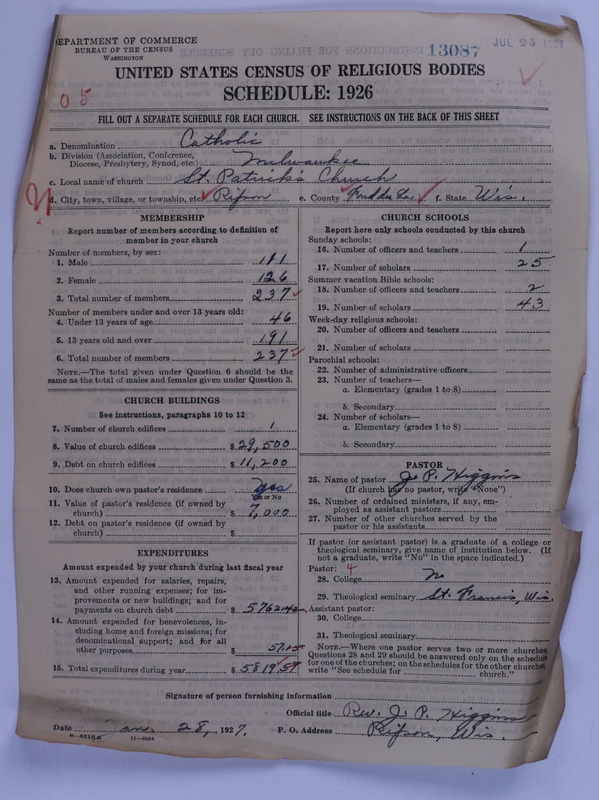 DEPARTMENT OF COMMERCE
BUREAU OF THE CENSUS
WASHINGTON
13087
JUL 25 1927
UNITED STATES CENSUS OF RELIGIOUS BODIES
SCHEDULE: 1926
05
FILL OUT A SEPARATE SCHEDULE FOR EACH CHURCH. SEE INSTRUCTIONS ON THE BACK OF THIS SHEET
a. Denomination Catholic
b. Division (Association, Conference, Diocese, Presbytery, Synod, etc.) Milwaukee
c. Local name of church St. Patrick's Church
d. City, town, village, or township, etc. Ripon e. County Fond du Lac f. State Wis.
MEMBERSHIP
Report number of members according to definition of
member in your church
Number of members, by sex:
1. Male 111
2. Female 126
3. Total number of members 237
Number of members under and over 13 years old:
4. Under 13 years of age 46
5. 13 years old and over 191
6. Total number of members 237
NOTE.—The total given under Question 6 should be the
same as the total of males and females given under Question 3.
CHURCH BUILDINGS
See instructions, paragraphs 10 to 12
7. Number of church edifices 1
8. Value of church edifices $29,500
9. Debt on church edifices $11,200
10. Does church own pastor's residence Yes
Yes or No
11. Value of pastor's residence (if owned by
church) $7,000
12. Debt on pastor's residence (if owned by
church) $
EXPENDITURES
Amount expended by your church during last fiscal year
13. Amount expended for salaries, repairs,
and other running expenses; for im-
provements or new buildings; and for
payments on church debt $5762.42
14. Amount expended for benevolences, in-
cluding home and foreign missions; for
denominational support; and for all
other purposes $57.15
15. Total expenditures during year $5819.57
CHURCH SCHOOLS
Report here only schools conducted by this church
Sunday schools:
16. Number of officers and teachers 1
17. Number of scholars 25
Summer vacation Bible schools:
18. Number of officers and teachers 2
19. Number of scholars 43
Week-day religious schools:
20. Number of officers and teachers
21. Number of scholars
Parochial schools:
22. Number of administrative officers
23. Number of teachers—
a. Elementary (grades 1 to 8)
b. Secondary
24. Number of scholars—
a. Elementary (grades 1 to 8)
b. Secondary
PASTOR
25. Name of pastor J. P. Higgins
(If church has no pastor, write "None")
26. Number of ordained ministers, if any, em-
ployed as assistant pastors
27. Number of other churches served by the
pastor or his assistants
If pastor (or assistant pastor) is a graduate of a college or
theological seminary, give name of institution below. (If
not a graduate, write "No" in the space indicated.)
Pastor: 4
28. College No
29. Theological seminary St. Francis, Wis.
Assistant pastor:
30. College
31. Theological seminary
NOTE.—Where one pastor serves two or more churches
Questions 28 and 29 should be answered only on the schedule
for one of the churches; on the schedules for the other churches
write "See schedule for church."
Signature of person furnishing information
Official title Rev. J. P. Higgins
Date June 28, 1927. P. O. Address Ripon, Wis.